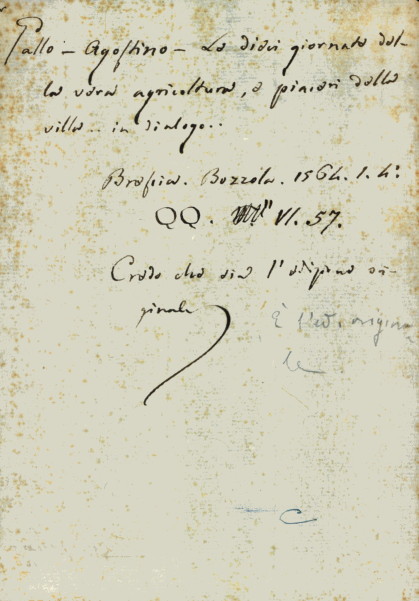 Gallo – Agostino – Le dieci giornate del-
la vera agricoltura, e piaceri della
villa.. in dialogo..
Brescia. Bozzola. 1564. 1. 4°
QQ. VI. 57.
Credo che sia l'edizione ori-
ginale
È l'ed. origina
le
C